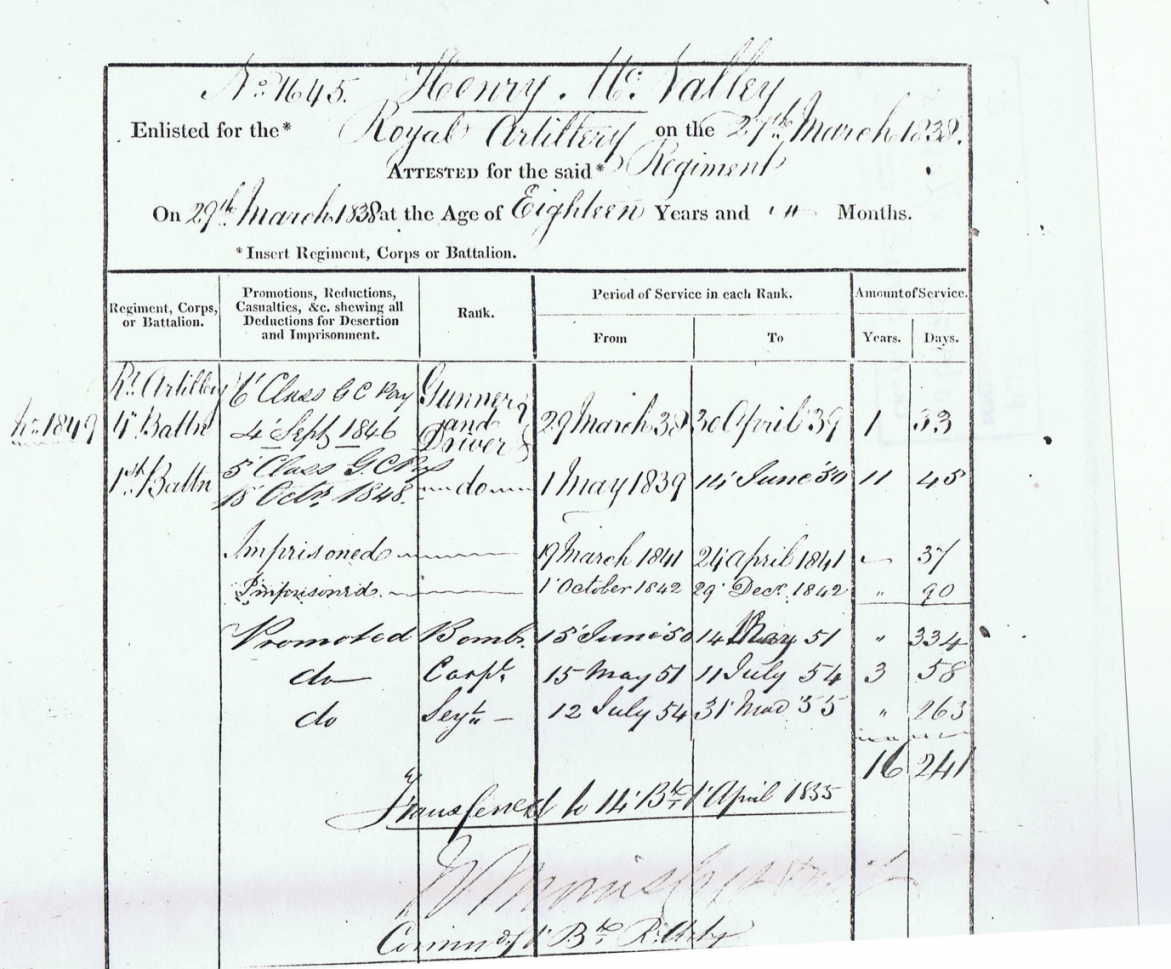 No. 1645. Henry. Mc. Nalley
Enlisted for the* Royal Artillery on the 27th March 1838.
ATTESTED for the said* Regiment
On 29th March 1838 at the Age of Eighteen Years and " " Months.
* Insert Regiment, Corps or Battalion.
Regiment, Corps, or Battalion. Promotions, Reductions, Casualties, &c. shewing all Deductions for Desertion and Imprisonment. Rank. Period of Service in each Rank. Amount of Service.
From To Years. Days.
Rl. Artillery 6' Class G C Pay Gunner
No. 1849 4' Battn 4' Sept 1846 and Driver 29 March 38 30 April 39 1 33
1st Battn 5' Class G. C Pay
18' Octr. 1848. do 1 May 1839 14' June '50 11 45
Imprisoned 19 March 1841 24' April 1841 37
Imprisoned. 1' October 1842 29' Decr. 1842 " 90
Promoted Bombr. 15' June '50 14 May 51 " 334
do Corpl. 15 May 51 11 July 54 3 58
do Serjt. 12 July 54 31' Mar 55 " 263
16 241
Transferred to 14' Bn. 1' April 1855
Comm'd'g 1' Bn. Rl. Arty